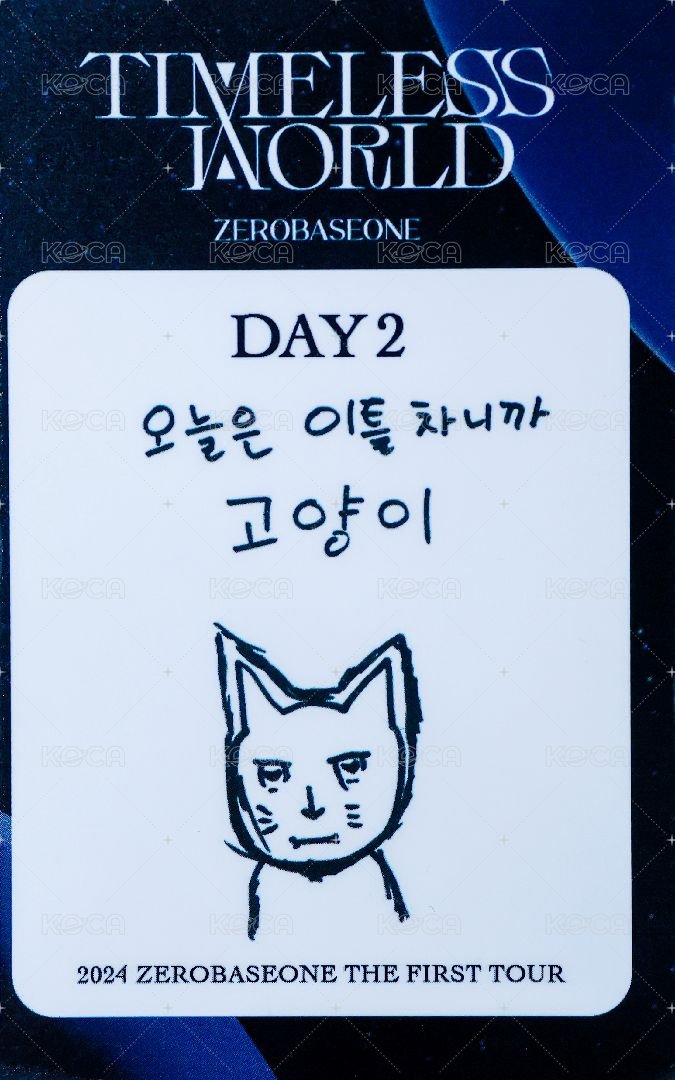 TIMELESS
WORLD
ZEROBASEONE
DAY 2
오늘은 이틀차니까
고양이
2024 ZEROBASEONE THE FIRST TOUR
KOCA